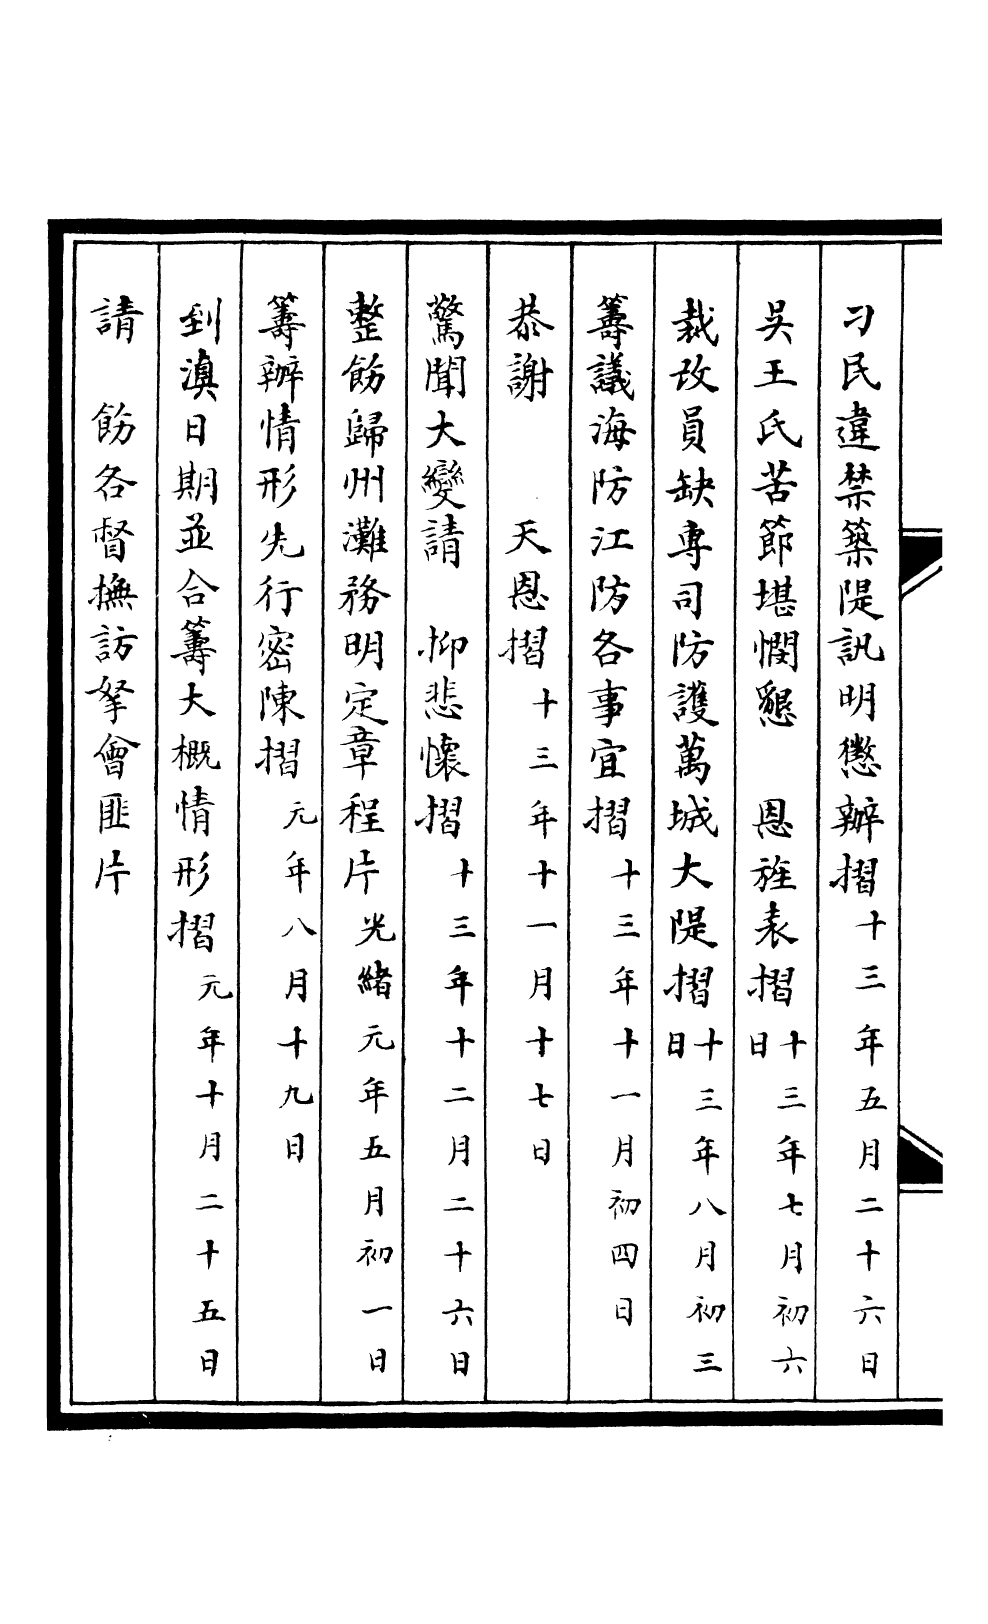 刁民違禁築隄訊明懲辦摺十三年五月二十六日
吳王氏苦節堪憫懇　恩旌表摺十三年七月初六日
裁改員缺專司防護萬城大隄摺十三年八月初三日
籌議海防江防各事宜摺十三年十一月初四日
恭謝　　天恩摺十三年十一月十七日
驚聞大變請　抑悲懷摺十三年十二月二十六日
整飭歸州灘務明定章程片光緒元年五月初一日
籌辦情形先行密陳摺元年八月十九日
到滇日期並合籌大概情形摺元年十月二十五日
請　飭各督撫訪拏會匪片